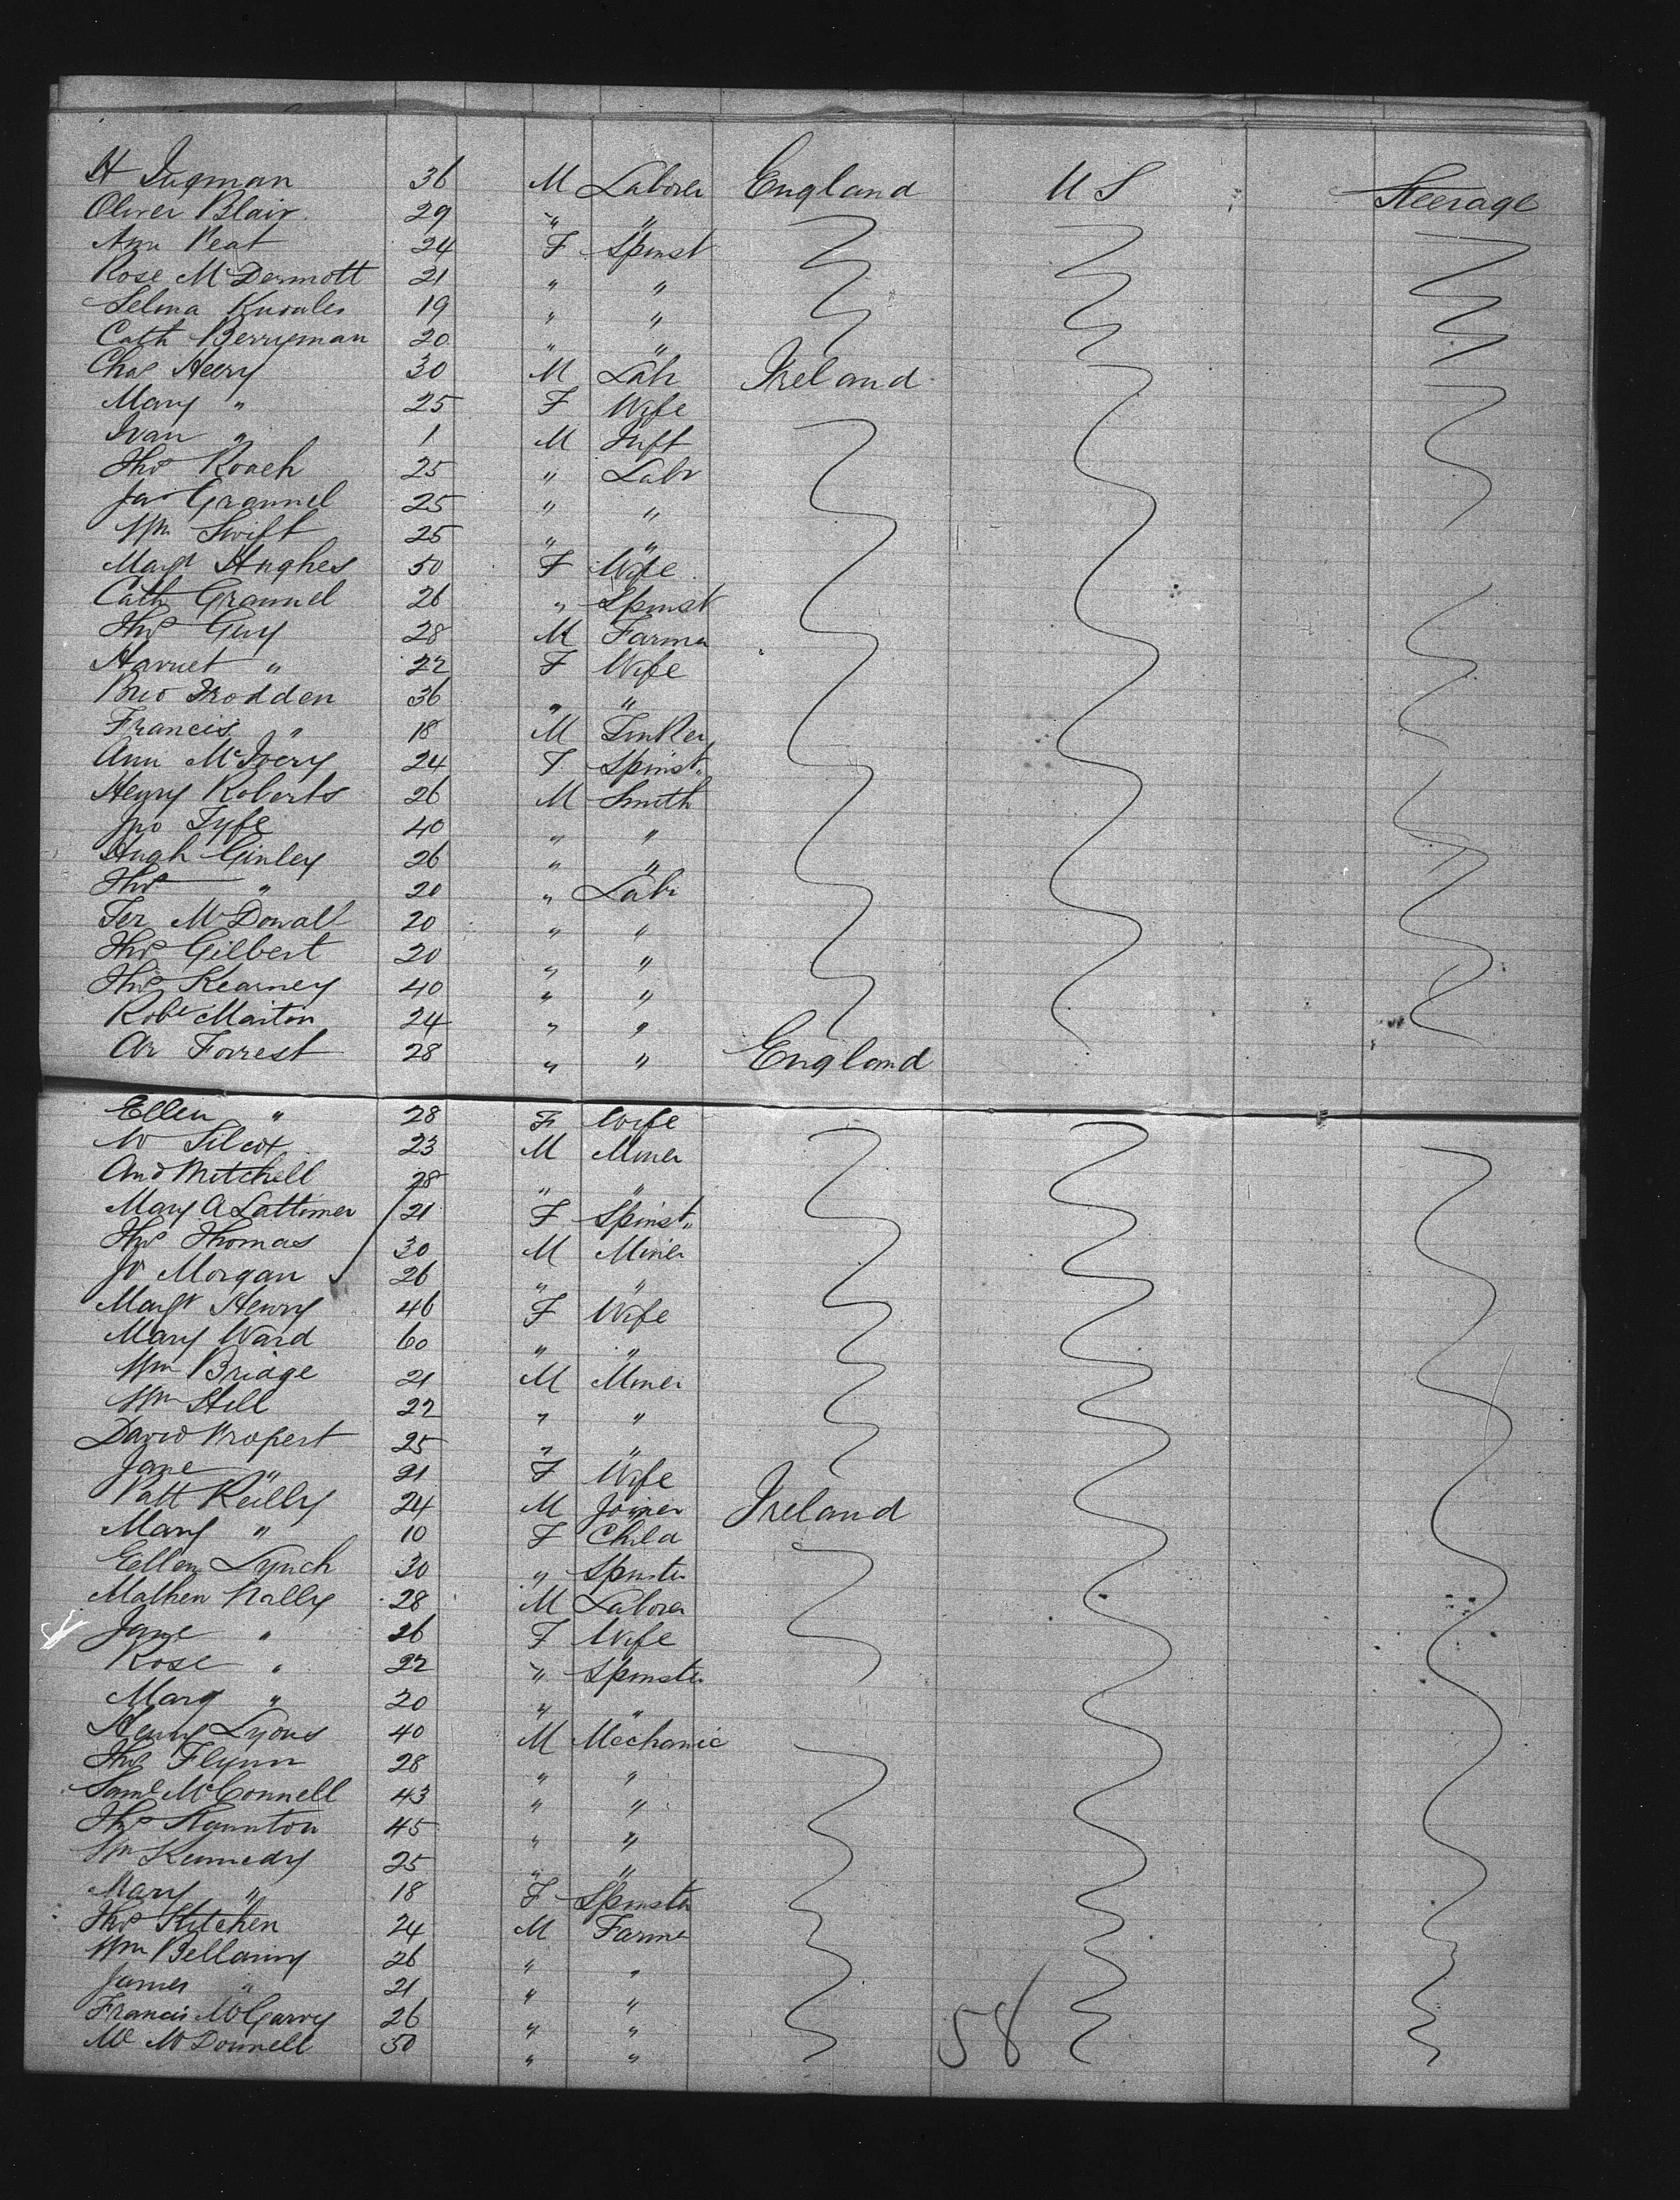 H Ingman 36 M Laborer England U S Steerage
Oliver Blair 29 " "
Ann Peat 24 F Spinst
Rose McDermott 21 " "
Selina Knowles 19 " "
Cath Berryman 20 " "
Chas Heery 30 M Labr Ireland
Mary " 25 F Wife
Ivan " 1 M Inft
Thos Roach 25 " Labr
Jas Grannel 25 " "
Wm Swift 25 " "
Magt Hughes 50 F Wife
Cath Grannel 26 " Spinst
Thos Guy 28 M Farmer
Harriet " 22 F Wife
Frodden 36 " "
Francis " 18 M Tinker
Ann McIvery 24 F Spinst
Henry Roberts 26 M Smith
Jno Fyfe 40 " "
Hugh Ginley 26 " "
Thos " 20 " Labr
Ter McDonall 20 " "
Thos Gilbert 20 " "
Thos Kearney 40 " "
Robt Maiton 24 " "
Ar Forrest 28 " " England
Ellen " 28 F Wife
W Silcox 23 M Miner
And Mitchell 28 " "
Mary A Lattimer 21 F Spinst
Thos Thomas 30 M Miner
Jo Morgan 26 " "
Magt Henry 46 F Wife
Mary Ward 60 " "
Wm Bridge 21 M Miner
Wm Hill 22 " "
David Propert 25 " "
Jane " 21 F Wife
Patt Reilly 24 M Joiner Ireland
Mary " 10 F Child
Ellen Lynch 30 " Spinster
Mathew Nally 28 M Laborer
Jane " 26 F Wife
Rose " 22 " Spinster
Mary " 20 " "
Henry Lyons 40 M Mechanic
Thos Flynn 28 " "
Saml McConnell 43 " "
Thos Staunton 45 " "
Wm Kennedy 25 " "
Mary " 18 F Spinster
Thos Kitchen 24 M Farmer
Wm Bellamy 26 " "
James " 21 " "
Francis McGarry 26 " "
McDonnell 50 " "
58